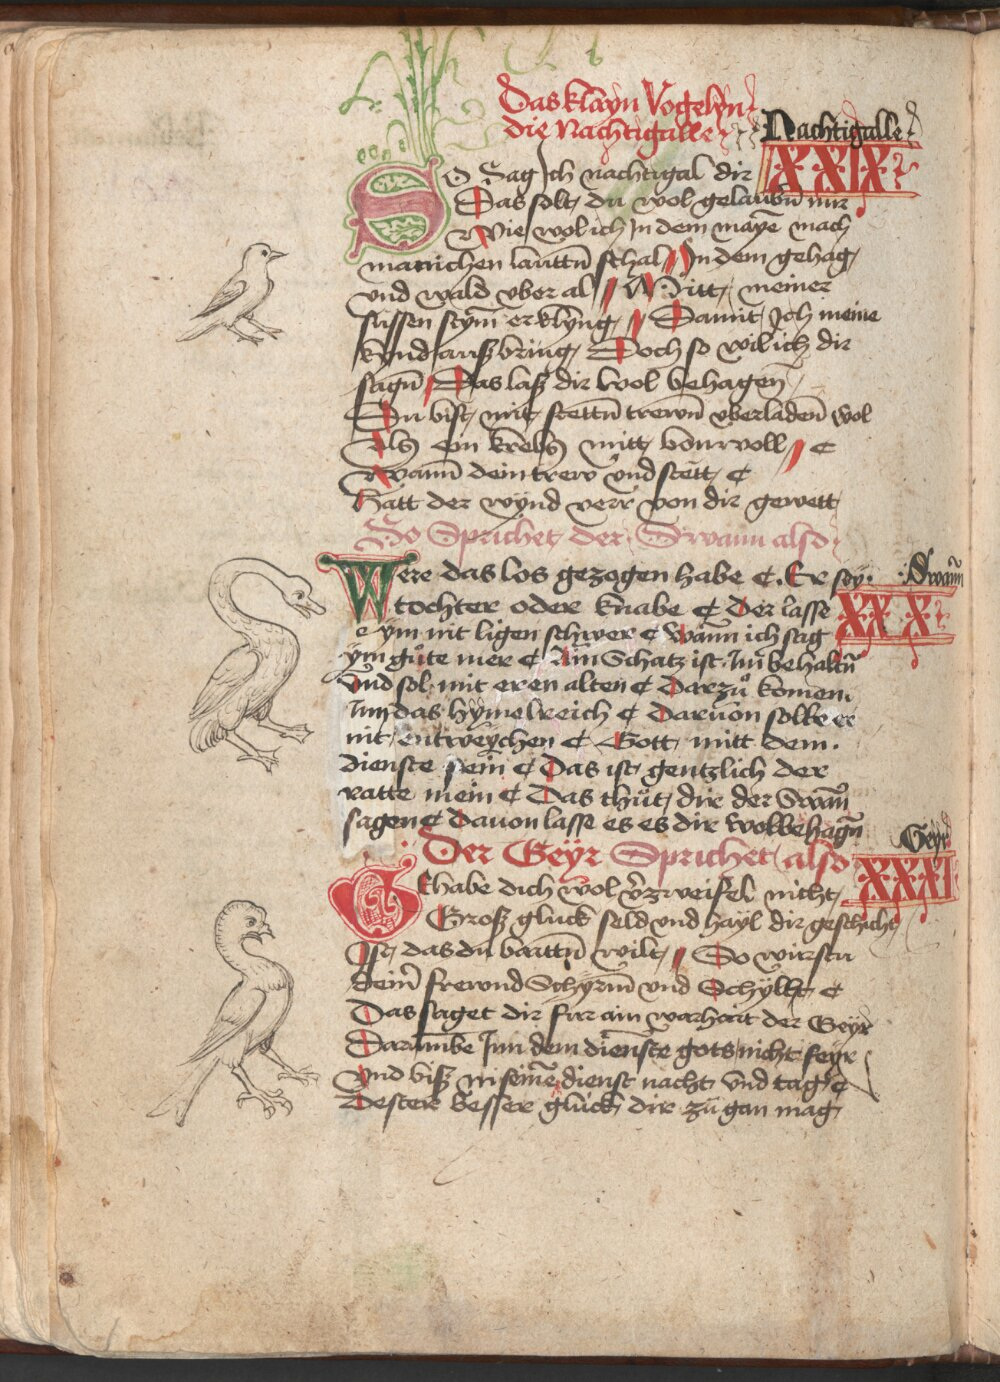 Das klayn Vogelyn
die Nachtigalle
Nachtigalle
XXIX
So Sag Ich nachtigal dir
Das solt du wol gelaubn̄ mir
Wie wol ich Jn dem mayē mach
manichen lauttn̄ schal Jn dem gehag
vnd wald vber al Mitt meiner
süssen stym̄ erklyng Damit Jch meine
kynd ausz bring Doch so wil ich dir
sagn̄ Das lasz dir wol behagen̄
Du bist mit stettn̄ trewn̄ vberladen̄ wol
Als ein krebs mitt bomwoll
Wann dein trew vnd stett
Hatt der wynd verr von dir gewett
So Sprichet der Swann also
Were das los gezogen habe Er sey
Swan̄
XXX
tochter oder knabe Der lasse
ym nit ligen schwer Wann ich sag
ym gůte mer Ain Schatz ist Jm behaltn̄
Vnd sol mit eren alten Darzů komen
Jnn das hymelreich Daruon solle er
nit entweychen Gott mitt dem
dienste sein Das ist gentzlich der
ratte mein Das thůt dir der Swan̄
sagen Dauon lasse es es dir wolbehagn̄
Geyr
Der Geyr Sprichet also
XXXI
Ghabe dich wol v̄zweifel nicht
Grosz gluck seld vnd hayl dir geschicht
Ist das du baittn̄ wilt So wirstu
dein̄ frewnd Schyrm̄ vnd Schyllt
Das saget dir fur ain warhait der Geyr
Darumbe Jnn dem dienste gots nicht feyr
Vnd bisz in seinē dienst nacht vnd tag
Dester besser gluck dir zů gan mag